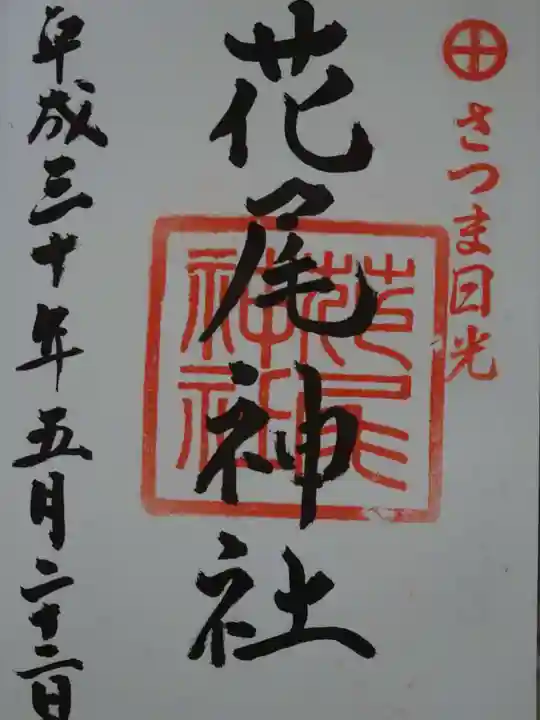 さつま日光
花尾神社
花尾
神社
平成三十年五月二十二日